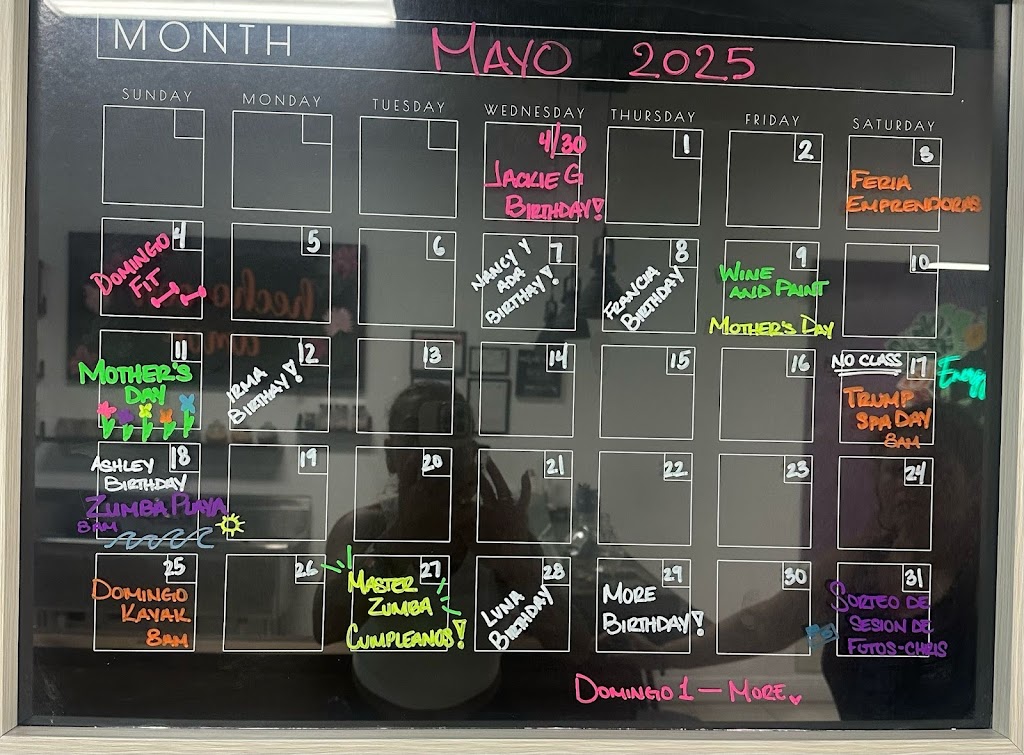 MONTH MAYO 2025
SUNDAY MONDAY TUESDAY WEDNESDAY THURSDAY FRIDAY SATURDAY
4/30
JACKIE G
BIRTHDAY!
1
2
3
FERIA
EMPRENDORAS
4
DOMINGO
FIT
5
6
7
NANCY Y
ADA
BIRTHAY!
8
FRANCIA
BIRTHDAY
9
WINE
AND PAINT
MOTHER'S DAY
10
11
MOTHER'S
DAY
12
IRMA
BIRTHAY!
13
14
15
16
NO CLASS 17
TRUMP
SPA DAY
8AM
18
ASHLEY
BIRTHDAY
ZUMBA PLAYA
8AM
19
20
21
22
23
24
25
DOMINGO
KAYAK
8AM
26
27
MASTER
ZUMBA
CUMPLEANOS!
28
LUNA
BIRTHDAY
29
MORE
BIRTHDAY!
30
31
SORTEO DE
SESION DE
FOTOS-CHRIS
DOMINGO 1 — MORE
hecho
Energy